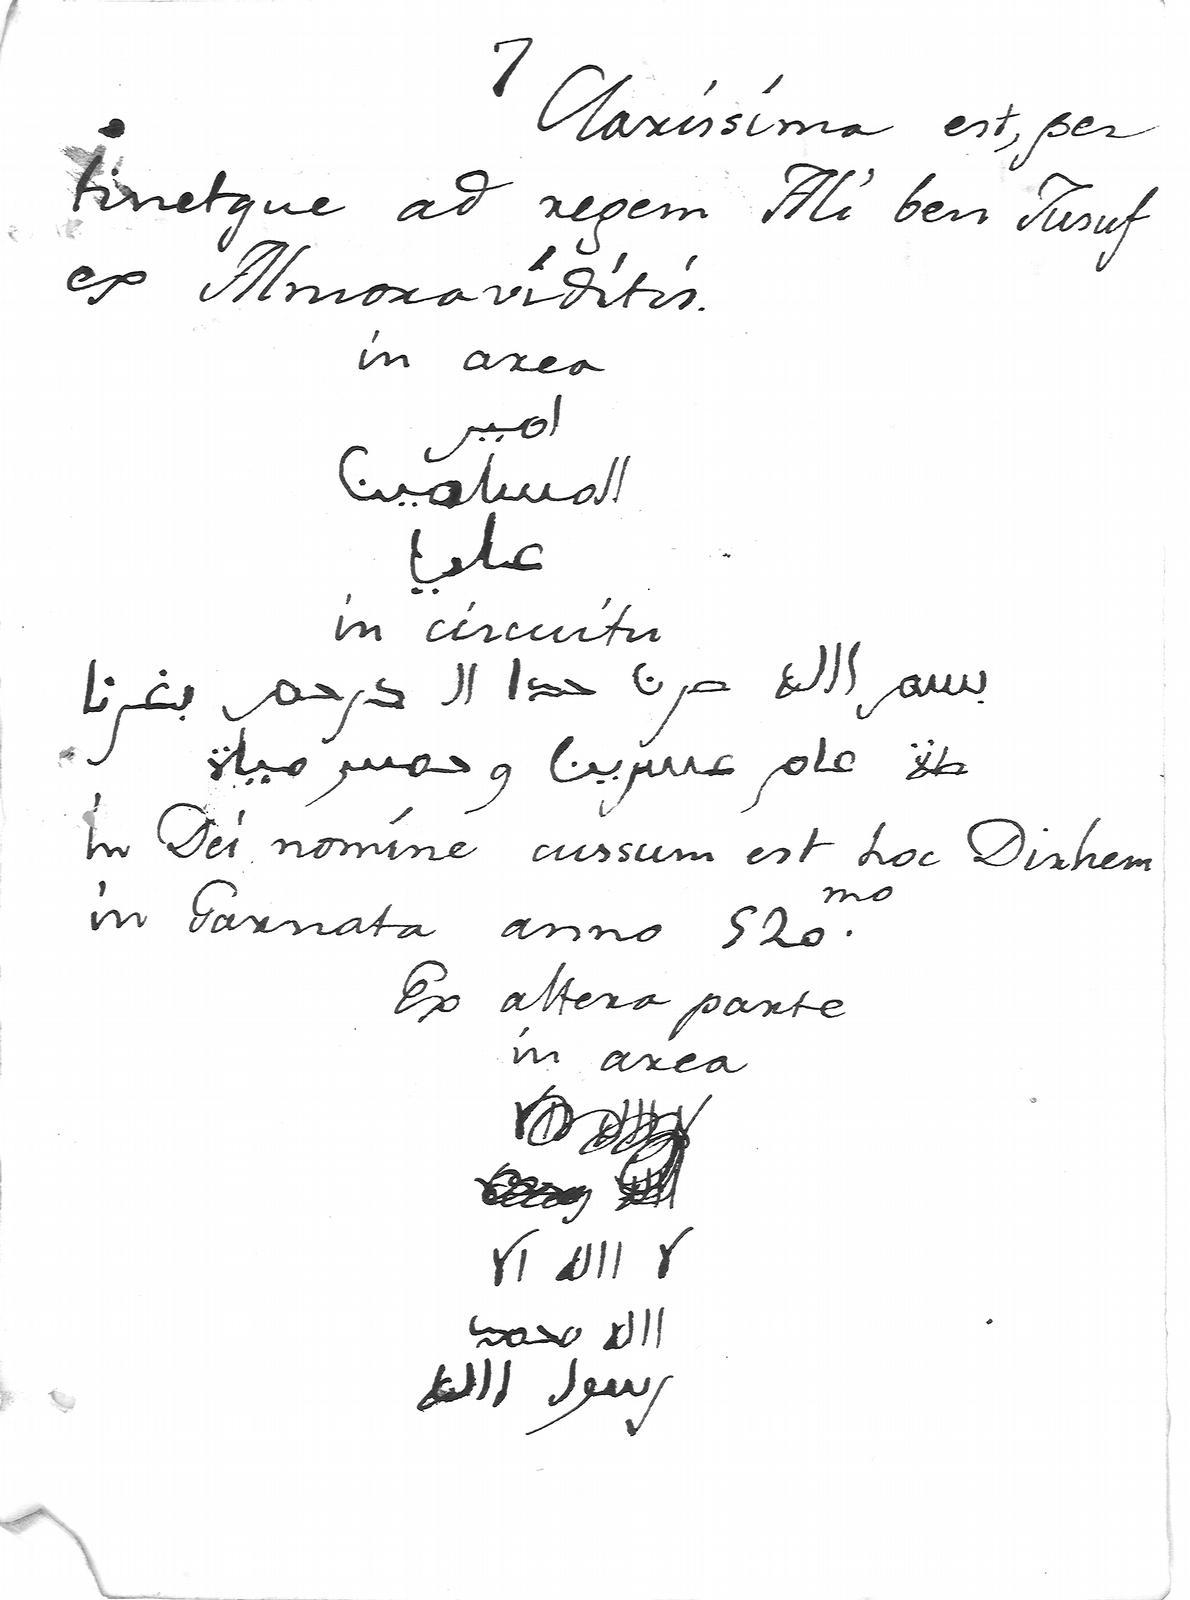 7
Clarissima est, per
tinetque ad regem Ali ben Jusuf
ex Almoraviditis.
in area
امير
المسلمين
علي
in circuitu
بسم الله ضرب هذا الدرهم بغرنا
طة عام عسرين و حمس مياة
in Dei nomine cussum est hoc Dirhem
in Garnata anno 520.mo
Ex altera parte
in area
لا اله الا
الله محمد
رسول الله